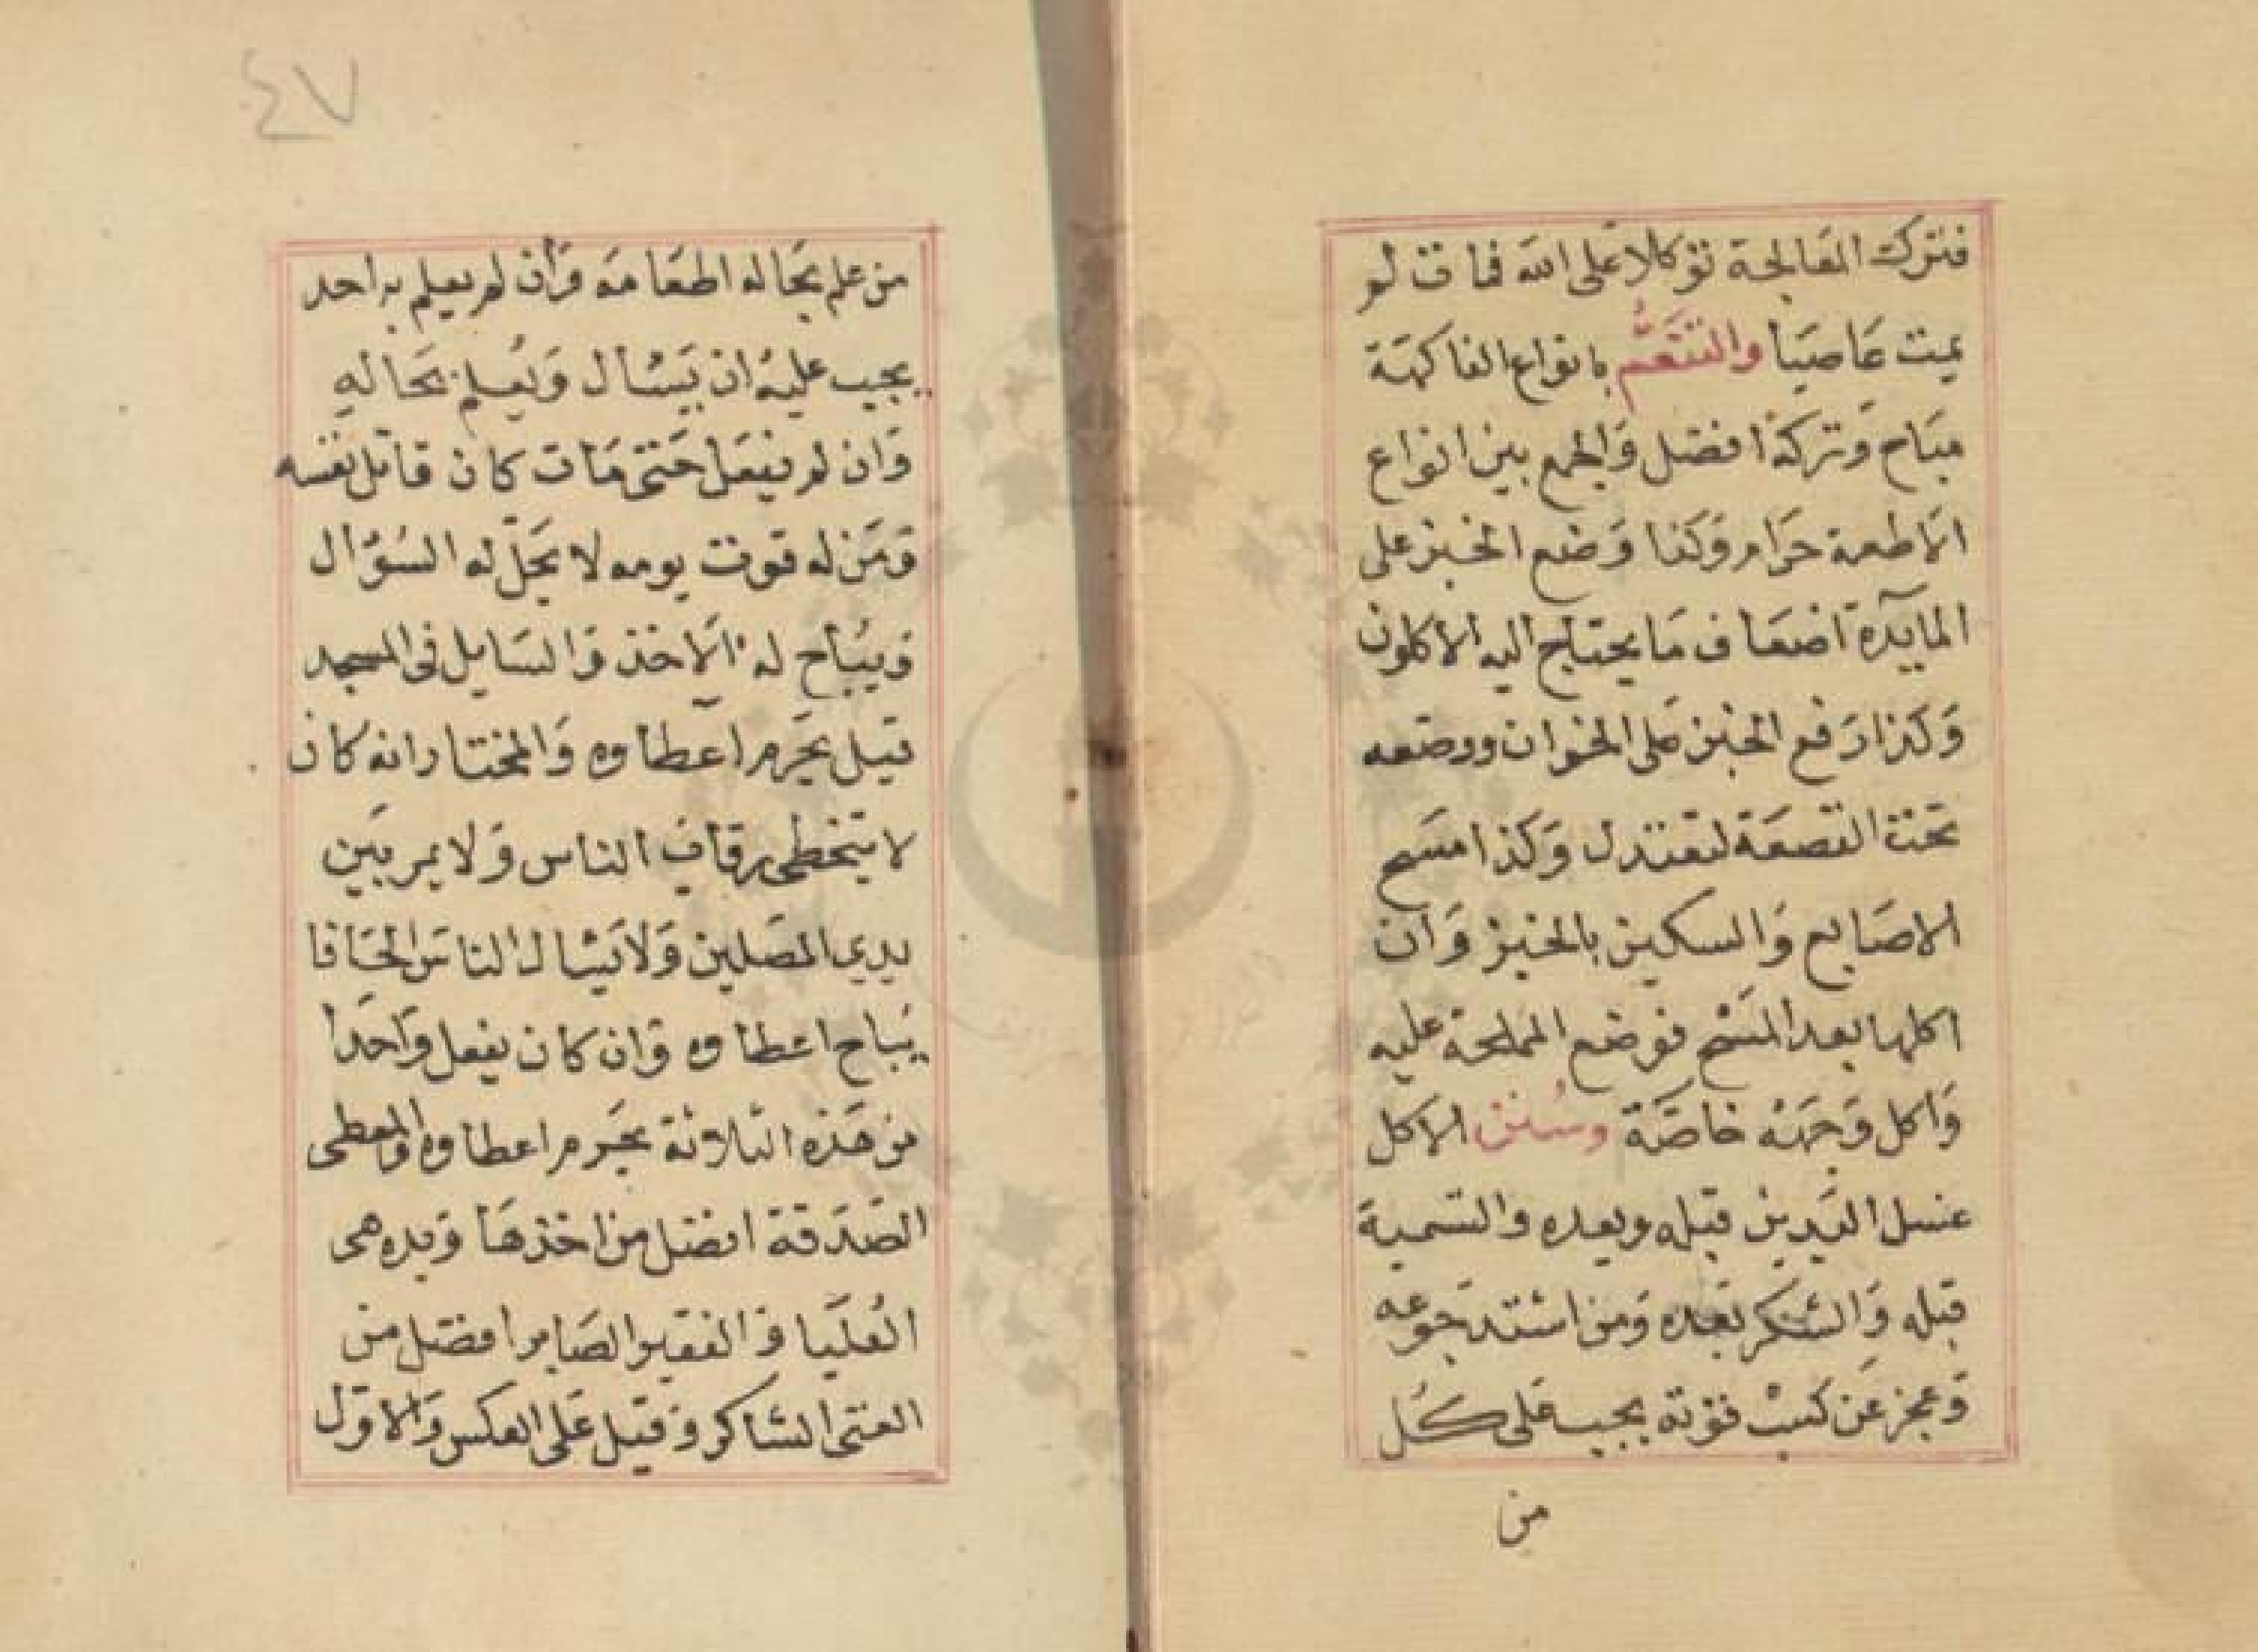 فترك المعالجة توكلا على الله فمات لم
يمت عاصيا والتنعم بانواع الفاكهة
مباح وتركه افضل والجمع بين انواع
الاطعمة حرام وكذا وضع الخبز على
المايدة اضعاف ما يحتاج اليه الاكلون
وكذا رفع الخبز على الخوان ووضعه
تحت القصعة لتعتدل وكذا مسح
الاصابع والسكين بالخبز وان
اكلها بعد المسح فوضع المملحة عليه
واكل وجهه خاصة وسنن الاكل
غسل اليدين قبله وبعده والتسمية
قبله والشكر بعده ومن اشتد جوعه
وعجز عن كسب قوته يجب على كل
من
٤٧
من علم بحاله اطعامه وان لم يعلم به احد
يجب عليه ان يسأل ويعلم بحاله
وان لم يفعل حتى مات كان قاتل نفسه
ومن له قوت يومه لا يحل له السؤال
ويباح له الاخذ والسايل فى المسجد
قيل يحرم اعطاوه والمختار انه كان
لا يتخطى رقاب الناس ولا يمر بين
يدي المصلين ولا يسأل الناس الحافا
يباح اعطاوه وان كان يفعل واحدا
من هذه الثلاثة يحرم اعطاوه والمعطى
الصدقة افضل من اخذها ويده هى
العليا والفقير الصابر افضل من
الغنى الشاكر وقيل على العكس والاول